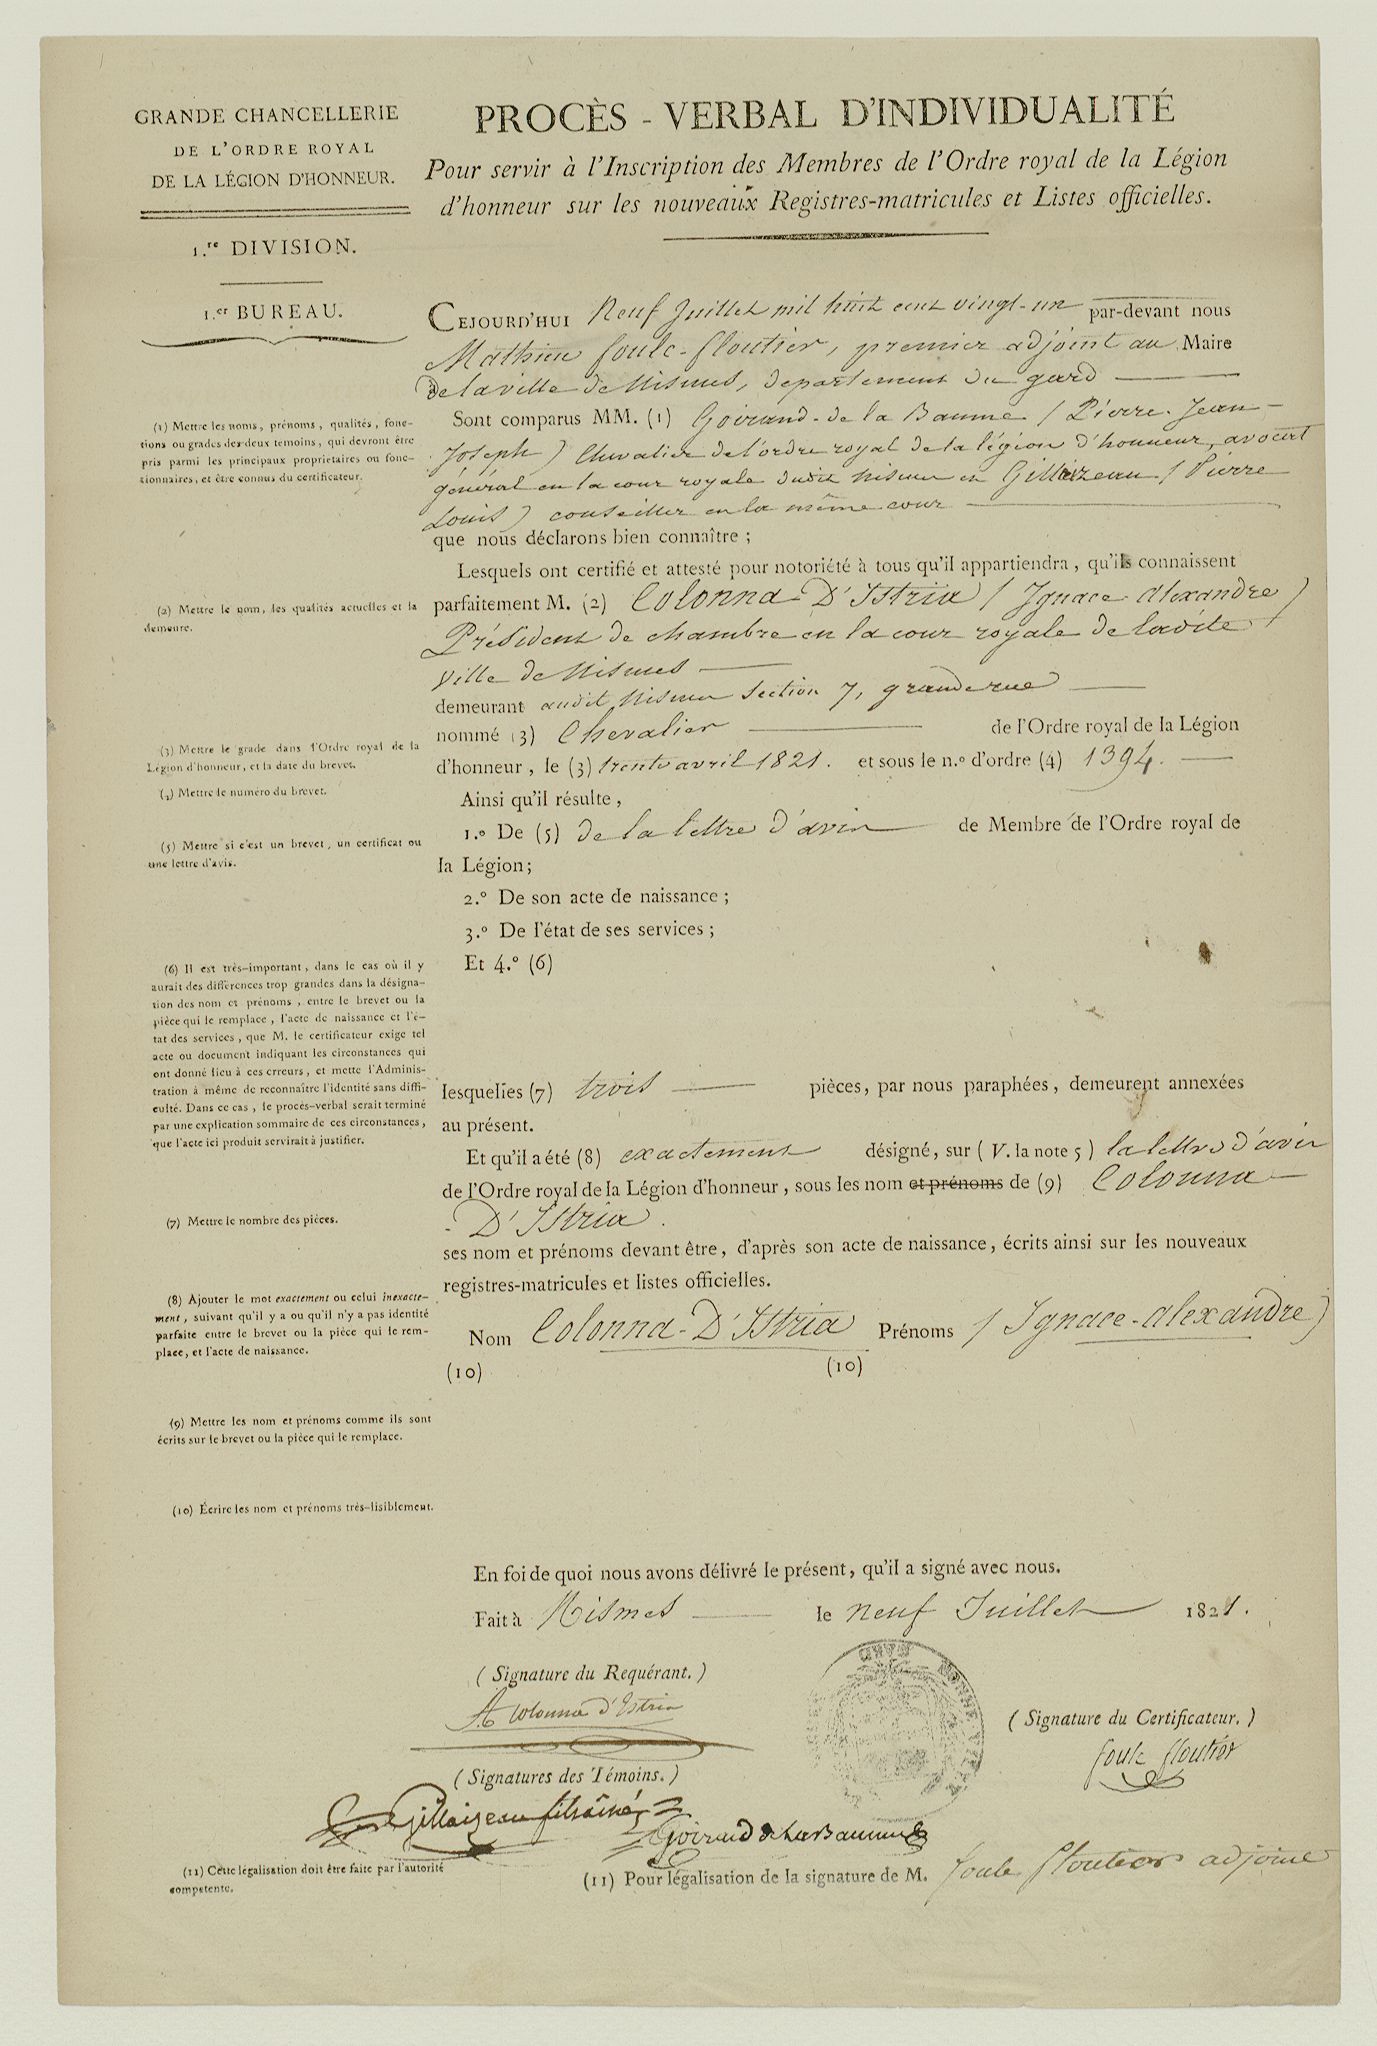 GRANDE CHANCELLERIE
DE L'ORDRE ROYAL
DE LA LÉGION D'HONNEUR.
1.re DIVISION.
1.er BUREAU.
PROCÈS-VERBAL D'INDIVIDUALITÉ
Pour servir à l'Inscription des Membres de l'Ordre royal de la Légion
d'honneur sur les nouveaux Registres-matricules et Listes officielles.
CEJOURD'HUI Neuf Juillet mil huit cent vingt-un par-devant nous
Mathieu foulc-floutier, premier adjoint au Maire
de la ville de Nismes, département du gard
Sont comparus MM. (1) Goirand-de la Baume (Pierre-Jean-
Joseph) Chevalier de l'ordre royal de la légion d'honneur, avocat
général en la cour royale dudit Nismes et Gillaizeau (Pierre
Louis) conseiller en la même cour
que nous déclarons bien connaître ;
Lesquels ont certifié et attesté pour notoriété à tous qu'il appartiendra, qu'ils connaissent
parfaitement M. (2) Colonna-D'Istria (Ignace-Alexandre)
Président de chambre en la cour royale de ladite
ville de Nismes
demeurant audit Nismes section 7, grande rue
nommé (3) Chevalier de l'Ordre royal de la Légion
d'honneur, le (3) trente avril 1821. et sous le n.o d'ordre (4) 1394.
Ainsi qu'il résulte,
1.o De (5) de la lettre d'avis de Membre de l'Ordre royal de
la Légion;
2.o De son acte de naissance ;
3.o De l'état de ses services ;
Et 4.o (6)
lesquelles (7) trois pièces, par nous paraphées, demeurent annexées
au présent.
Et qu'il a été (8) exactement désigné, sur ( V. la note 5 ) la lettre d'avis
de l'Ordre royal de la Légion d'honneur, sous les nom et prénoms de (9) Colonna-
-D'Istria.
ses nom et prénoms devant être, d'après son acte de naissance, écrits ainsi sur les nouveaux
registres-matricules et listes officielles.
Nom Colonna-D'Istria Prénoms (Ignace-Alexandre)
(10) (10)
En foi de quoi nous avons délivré le présent, qu'il a signé avec nous.
Fait à Nismes le neuf Juillet 1821.
( Signature du Requérant. )
A Colonna d'Istria
( Signature du Certificateur. )
foulc floutier
( Signatures des Témoins. )
Gillaizeau fils aîné
Goirand de La Baume
(11) Pour légalisation de la signature de M. foulc floutier adjoint
(1) Mettre les noms, prénoms, qualités, fonc-
tions ou grades des deux témoins, qui devront être
pris parmi les principaux propriétaires ou fonc-
tionnaires, et être connus du certificateur.
(2) Mettre le nom, les qualités actuelles et la
demeure.
(3) Mettre le grade dans l'Ordre royal de la
Légion d'honneur, et la date du brevet.
(4) Mettre le numéro du brevet.
(5) Mettre si c'est un brevet, un certificat ou
une lettre d'avis.
(6) Il est très-important, dans le cas où il y
aurait des différences trop grandes dans la désigna-
tion des nom et prénoms, entre le brevet ou la
pièce qui le remplace, l'acte de naissance et l'é-
tat des services, que M. le certificateur exige tel
acte ou document indiquant les circonstances qui
ont donné lieu à ces erreurs, et mette l'Adminis-
tration à même de reconnaître l'identité sans diffi-
culté. Dans ce cas, le procès-verbal serait terminé
par une explication sommaire de ces circonstances,
que l'acte ici produit servirait à justifier.
(7) Mettre le nombre des pièces.
(8) Ajouter le mot exactement ou celui inexacte-
ment, suivant qu'il y a ou qu'il n'y a pas identité
parfaite entre le brevet ou la pièce qui le rem-
place, et l'acte de naissance.
(9) Mettre les nom et prénoms comme ils sont
écrits sur le brevet ou la pièce qui le remplace.
(10) Écrire les nom et prénoms très-lisiblement.
(11) Cette légalisation doit être faite par l'autorité
compétente.